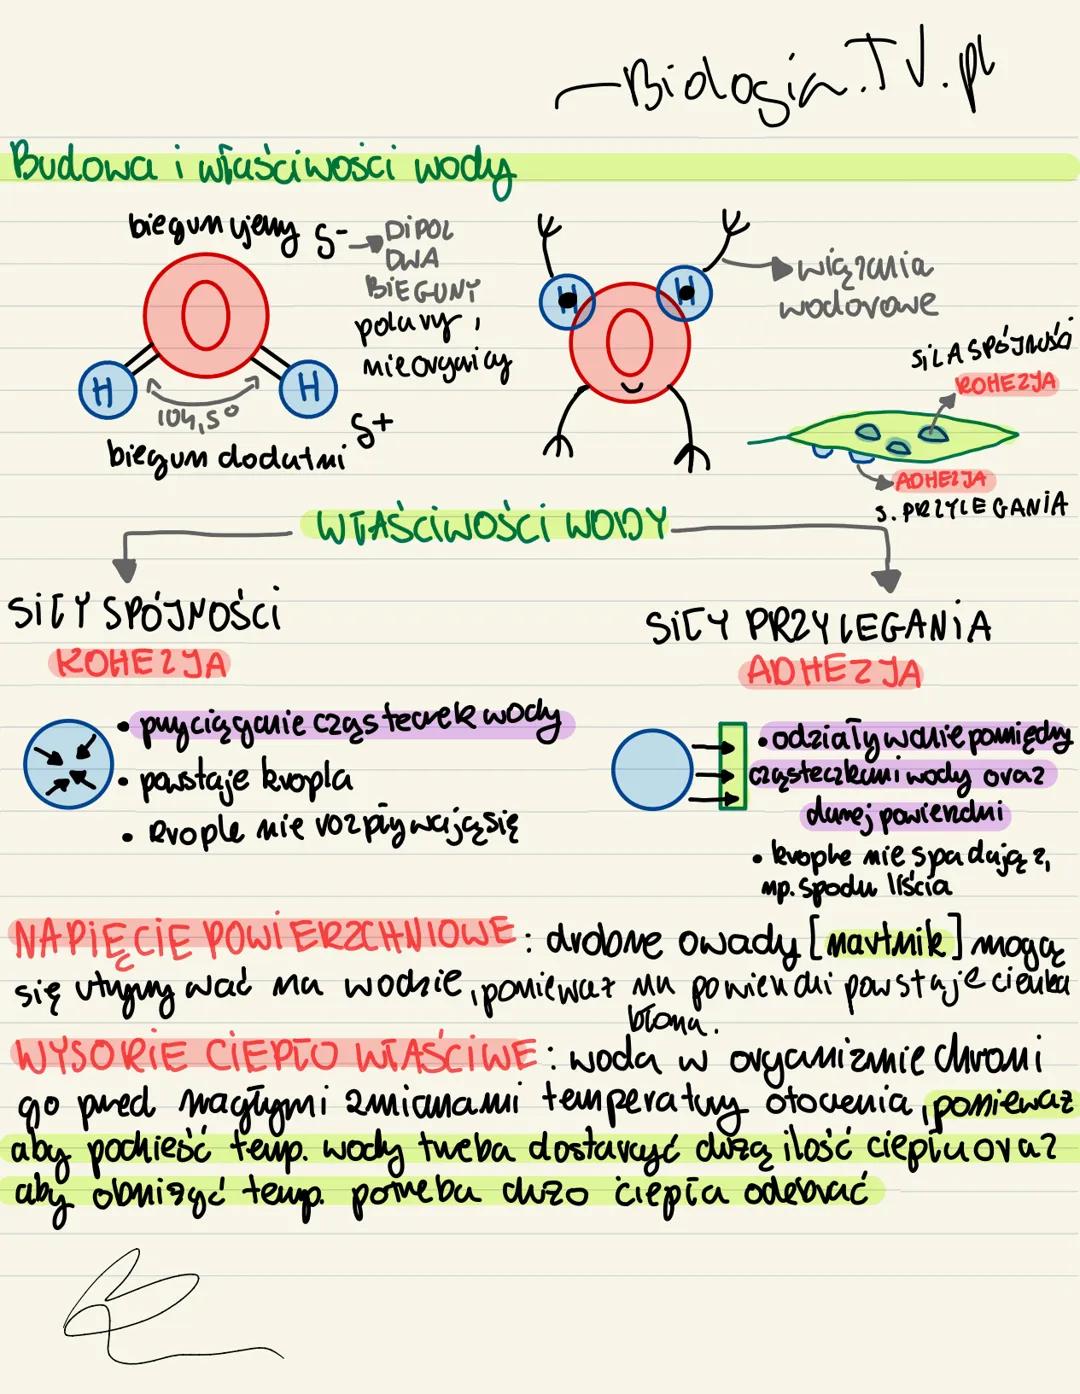 Biologia.TV.pl
Budowa i właściwości wody
biegun ujemny δ-
DiPOL
DWA
BiEGUNY
polarny,
nieorganiczny
O
H
H
104,5°
δ+
biegun dodatni
H
H
O
wiązania
wodorowe
SiŁA SPÓJNOŚCi
KOHEZJA
ADHEZJA
S. PRZYLEGANiA
WŁAŚCiWOŚCi WODY
SiŁY SPÓJNOŚCi
KOHEZJA
• przyciąganie cząsteczek wody
• powstaje kropla
• krople nie rozpływają się
SiŁY PRZYLEGANiA
ADHEZJA
• odziaływanie pomiędzy
cząsteczkami wody oraz
danej powierzchni
• krople nie spadają z,
np. spodu liścia
NAPiĘCiE POWiERZCHNIOWE: drobne owady [nartnik] mogą
się utrzymywać na wodzie, ponieważ na powierzchni powstaje cienka
błona.
WYSOKiE CiEPŁO WŁAŚCiWE: woda w organizmie chroni
go przed nagłymi zmianami temperatury otoczenia, ponieważ
aby podnieść temp. wody trzeba dostarczyć dużą ilość ciepła oraz
aby obniżyć temp. potrzeba dużo ciepła odebrać